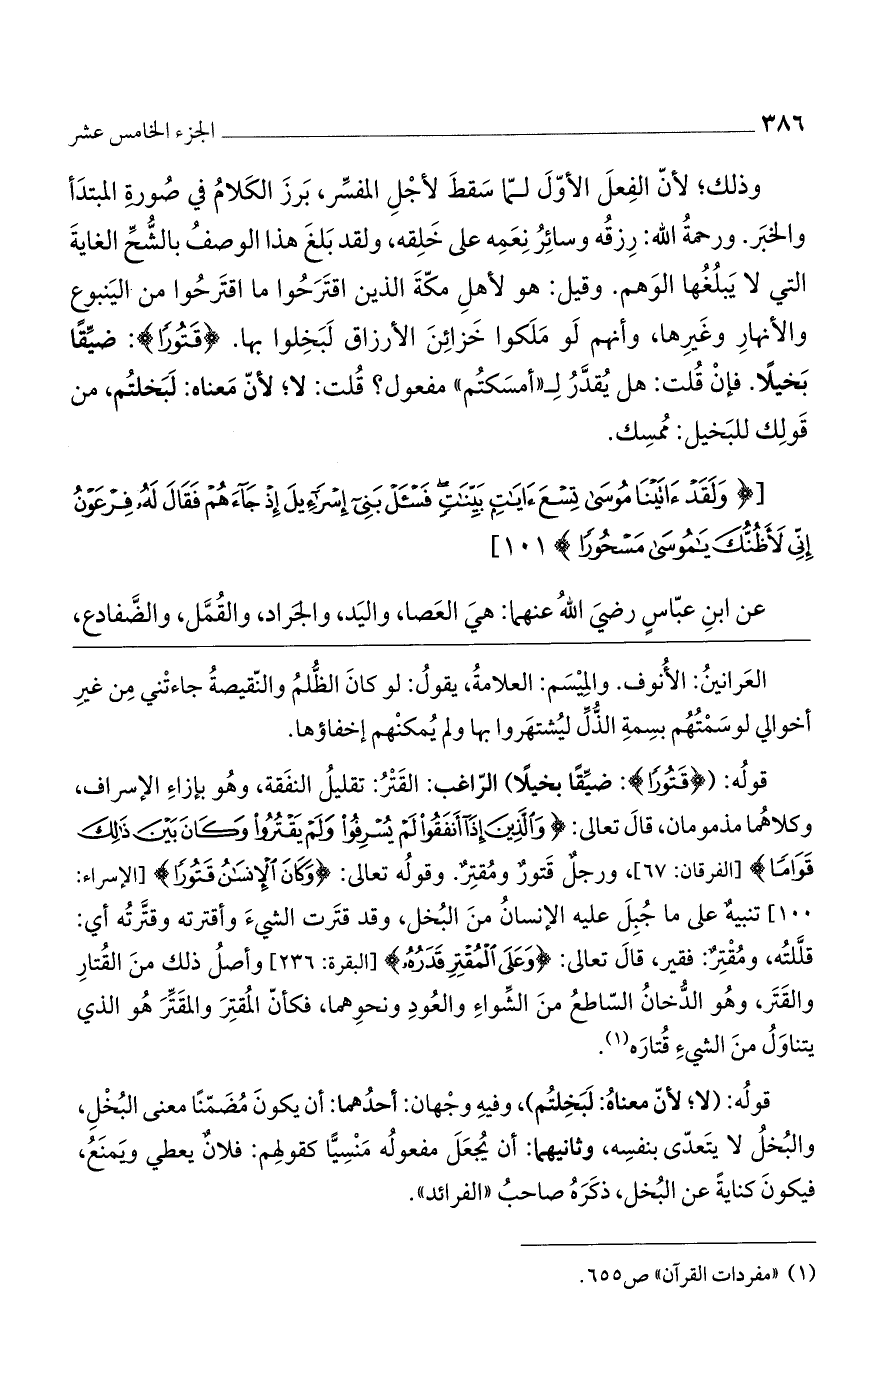 ٣٨٦ الجزء الخامس عشر
وذلك؛ لأنّ الفِعلَ الأوّلَ لـمّا سَقطَ لأجْلِ المفسِّر، بَرزَ الكَلامُ في صُورةِ المبتدَأ
والخبَر. ورحمةُ الله: رِزقُه وسائِرُ نِعَمِه على خَلِقه، ولقد بَلغَ هذا الوصفُ بالشُّحِّ الغايةَ
التي لا يَبلُغُها الوَهم. وقيل: هو لأهلِ مكّةَ الذين اقتَرَحُوا ما اقتَرحُوا من اليَنبوع
والأنهارِ وغَيرِها، وأنهم لَو مَلَكوا خَزائِنَ الأرزاق لَبَخِلوا بها. ﴿قَتُورًا﴾: ضيِّقًا
بَخيلًا. فإنْ قُلت: هل يُقدَّرُ لِـ«أمسَكتُم» مفعول؟ قُلت: لا؛ لأنّ مَعناه: لَبَخلتُم، من
قَولِك للبَخيل: مُمسِك.
[﴿ وَلَقَدْ ءَاتَيْنَا مُوسَىٰ تِسْعَ ءَايَٰتٍۭ بَيِّنَٰتٍۖ فَسْـَٔلْ بَنِىٓ إِسْرَٰٓءِيلَ إِذْ جَآءَهُمْ فَقَالَ لَهُۥ فِرْعَوْنُ
إِنِّى لَأَظُنُّكَ يَٰمُوسَىٰ مَسْحُورًا ﴾ ١٠١]
عن ابنِ عبّاسٍ رضيَ اللهُ عنهما: هيَ العَصا، واليَد، والجَراد، والقُمَّل، والضَّفادع،
العَرانينُ: الأُنوف. والمِيْسَم: العلامةُ، يقولُ: لو كانَ الظُّلمُ والنّقيصةُ جاءتْني مِن غيرِ
أخوالي لوسَمْتُهُم بسِمةِ الذُّلِّ ليُشتهَروا بها ولم يُمكنْهم إخفاؤها.
قولُه: (﴿قَتُورًا﴾: ضيِّقًا بخيلًا) الرّاغب: القَتْرُ: تقليلُ النفَقة، وهُو بإزاءِ الإسراف،
وكلاهُما مذمومان، قالَ تعالى: ﴿ وَٱلَّذِينَ إِذَآ أَنفَقُوا۟ لَمْ يُسْرِفُوا۟ وَلَمْ يَقْتُرُوا۟ وَكَانَ بَيْنَ ذَٰلِكَ
قَوَامًا ﴾ [الفرقان: ٦٧]، ورجلٌ قَتورٌ ومُقتِرٌ. وقولُه تعالى: ﴿وَكَانَ ٱلْإِنسَٰنُ قَتُورًا﴾ [الإسراء:
١٠٠] تنبيهٌ على ما جُبِلَ عليه الإنسانُ منَ البُخل، وقد قتَرت الشيءَ وأقترته وقتَّرتُه أي:
قلَّلتُه، ومُقْتِرٌ: فقير، قالَ تعالى: ﴿وَعَلَى ٱلْمُقْتِرِ قَدَرُهُۥ﴾ [البقرة: ٢٣٦] وأصلُ ذلك منَ القُتارِ
والقَتَر، وهُو الدُّخانُ السّاطعُ منَ الشِّواءِ والعُودِ ونحوِهما، فكأنّ المُقتِرَ والمقَتِّرَ هُو الذي
يتناوَلُ منَ الشيءِ قُتارَه(١).
قولُه: (لا؛ لأنّ معناهُ: لَبَخِلتُم)، وفيهِ وجْهان: أحدُهما: أن يكونَ مُضَمّنًا معنى البُخْلِ،
والبُخلُ لا يتَعدّى بنفسِه، وثانيهما: أن يُجعَلَ مفعولُه مَنْسِيًّا كقولِهم: فلانٌ يعطي ويَمنَعُ،
فيكونَ كنايةً عن البُخل، ذكَرَهُ صاحبُ «الفرائد».
(١) «مفردات القرآن» ص٦٥٥.